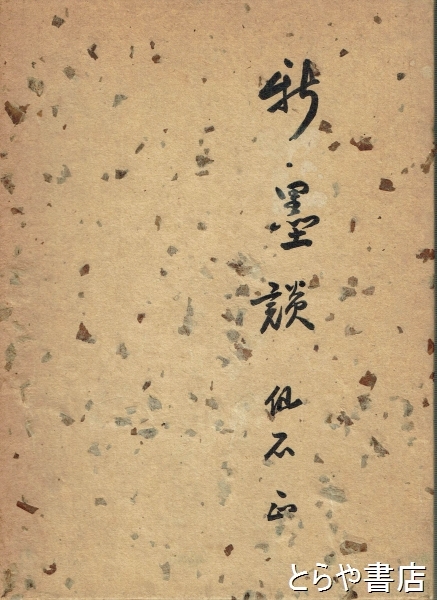 新・墨談 仙石正
とらや書店